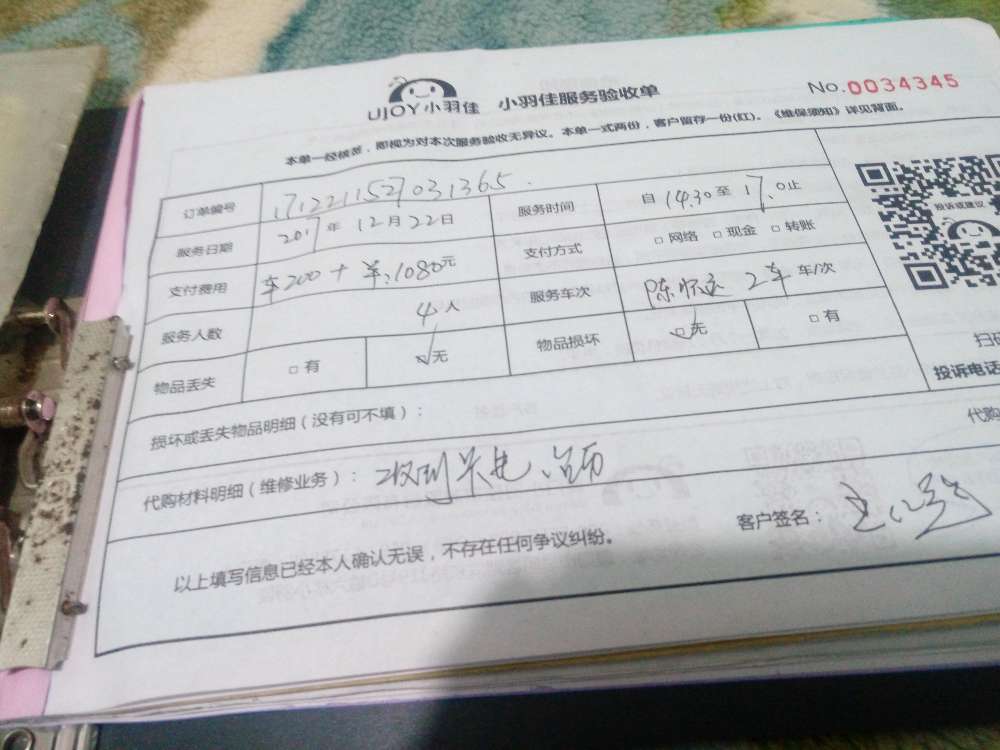 UJOY小羽佳 小羽佳服务验收单 No.0034345
本单一经核签，即视为对本次服务验收无异议。本单一式两份，客户留存一份(红)。《维保须知》详见背面。
订单编号 1712211527031365 服务时间 自 14:30 至 17:0止
服务日期 2017年 12月 22日 支付方式 □网络 □现金 □转账
支付费用 车200+ 1080元 服务车次 2车 车/次
服务人数 4人 物品损坏 □无 □有
物品丢失 □有 □无
损坏或丢失物品明细（没有可不填）：
代购材料明细（维修业务）： 收到
以上填写信息已经本人确认无误，不存在任何争议纠纷。 客户签名：
投诉或建议
扫码
投诉电话
代购